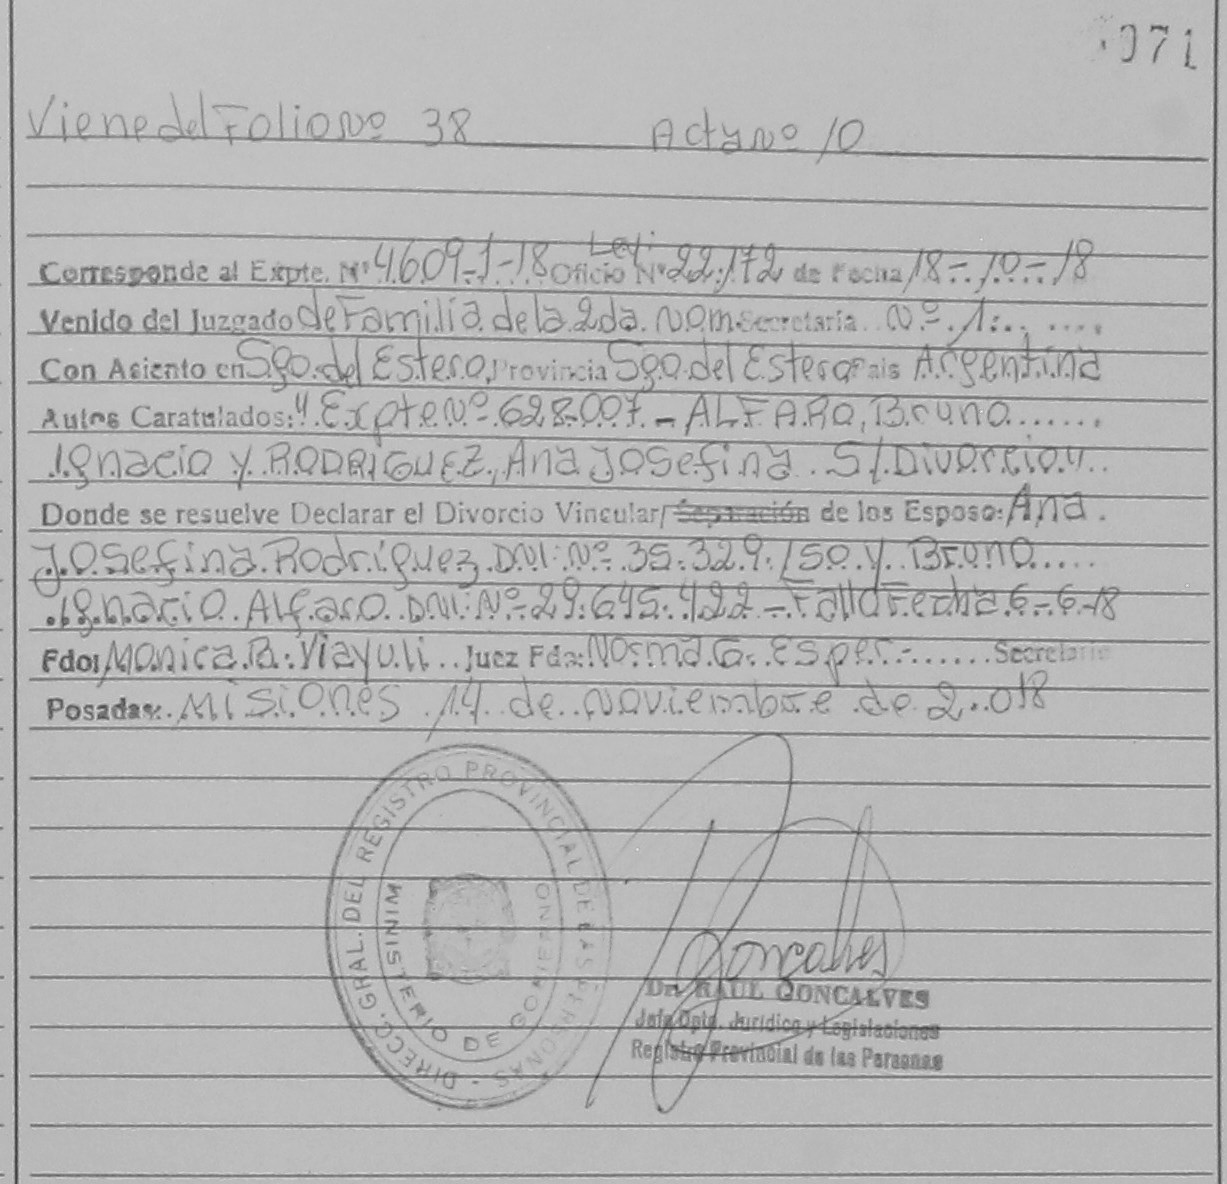 071
Viene del Folio Nº 38 Acta Nº 10
Ley:
Corresponde al Expte. Nº 4.609-1-18 Oficio Nº 22.172 de Fecha 18-10-18
Venido del Juzgado de Familia de la 2da. Nom Secretaría Nº 1
Con Asiento en Sgo. del Estero, Provincia Sgo. del Estero Pais Argentina
Autos Caratulados: "Expte Nº 628.007 - ALFARO, Bruno
Ignacio y RODRIGUEZ, Ana Josefina S/Divorcio"
Donde se resuelve Declarar el Divorcio Vincular/ Separación de los Esposo: Ana
Josefina Rodriguez DNI: Nº 35.329.150 y Bruno
Ignacio Alfaro DNI: Nº 29.645.422 - Fallo Fecha 6-6-18
Fdo: Monica B. Viayuli Juez Fda: Norma G. Esper - Secretario
Posadas: Misiones 14 de Noviembre de 2.018
DIRECC. GRAL. DEL REGISTRO PROVINCIAL DE LAS PERSONAS -
MINISTERIO DE GOBIERNO
Goncalves
Dr. RAUL GONCALVES
Jefe Dpto. Jurídico y Legislaciones
Registro Provincial de las Personas